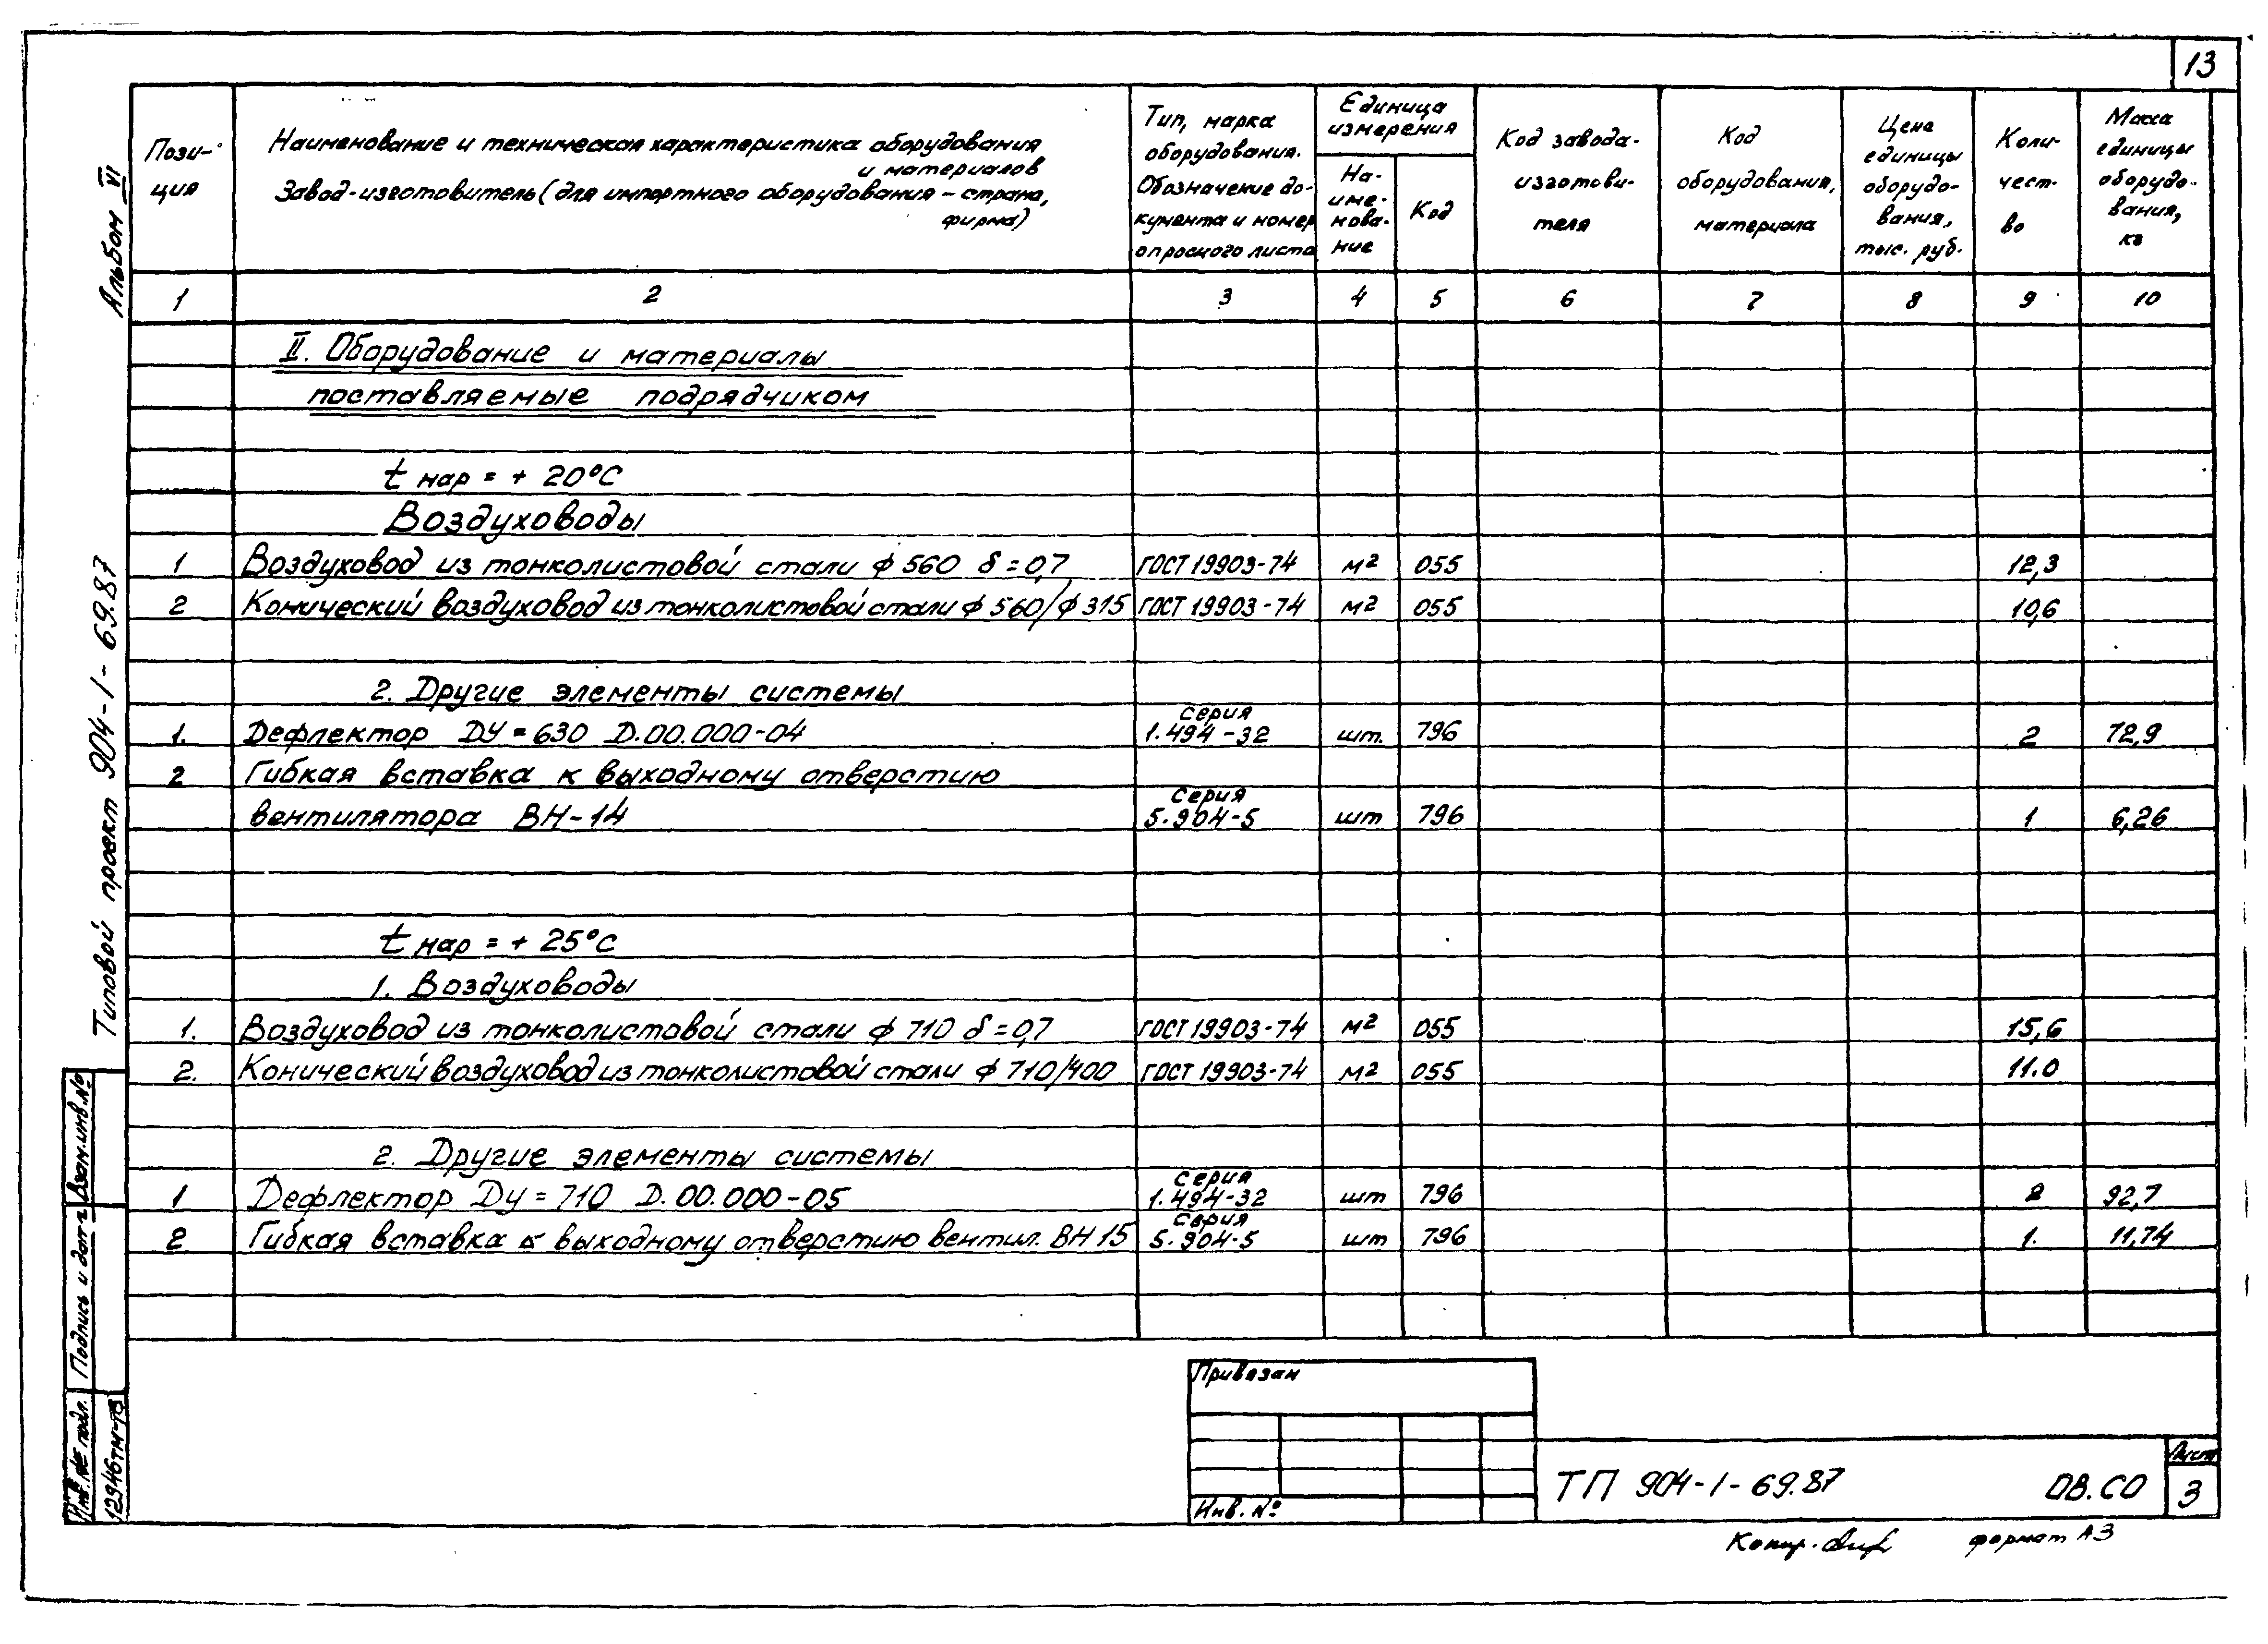 13
Альбом VI
Типовой проект 904-1-69.87
Пози-
ция
Наименование и техническая характеристика оборудования
и материалов
Завод-изготовитель (для импортного оборудования - страна,
фирма)
Тип, марка
оборудования.
Обозначение до-
кумента и номер
опросного листа
Единица
измерения
На-
име-
нова-
ние
Код
Код завода-
изготови-
теля
Код
оборудования,
материала
Цена
единицы
оборудо-
вания,
тыс. руб.
Коли-
чест-
во
Масса
единицы
оборудо-
вания,
кг
1 2 3 4 5 6 7 8 9 10
II. Оборудование и материалы
поставляемые подрядчиком
t нар = + 20°С
Воздуховоды
1 Воздуховод из тонколистовой стали ϕ 560 δ = 0,7 ГОСТ 19903-74 м² 055 12,3
2 Конический воздуховод из тонколистовой стали ϕ 560/ϕ 315 ГОСТ 19903-74 м² 055 10,6
2. Другие элементы системы
1. Дефлектор ДУ = 630 Д.00.000-04 серия 1.494-32 шт. 796 2 72,9
2 Гибкая вставка к выходному отверстию
вентилятора ВН-14 серия 5.904-5 шт 796 1 6,26
t нар = + 25°С
1. Воздуховоды
1. Воздуховод из тонколистовой стали ϕ 710 δ = 0,7 ГОСТ 19903-74 м² 055 15,6
2. Конический воздуховод из тонколистовой стали ϕ 710/400 ГОСТ 19903-74 м² 055 11.0
2. Другие элементы системы
1 Дефлектор Ду = 710 Д.00.000-05 серия 1.494-32 шт 796 2 92,7
2 Гибкая вставка к выходному отверстию вентил. ВН 15 серия 5.904-5 шт 796 1. 11,74
Взам.инв.№
Подпись и дата
Инв.№ подл.
12946тм-
Привязан
Инв. №
ТП 904-1-69.87 ОВ.СО
Лист
3
Копир. формат А3